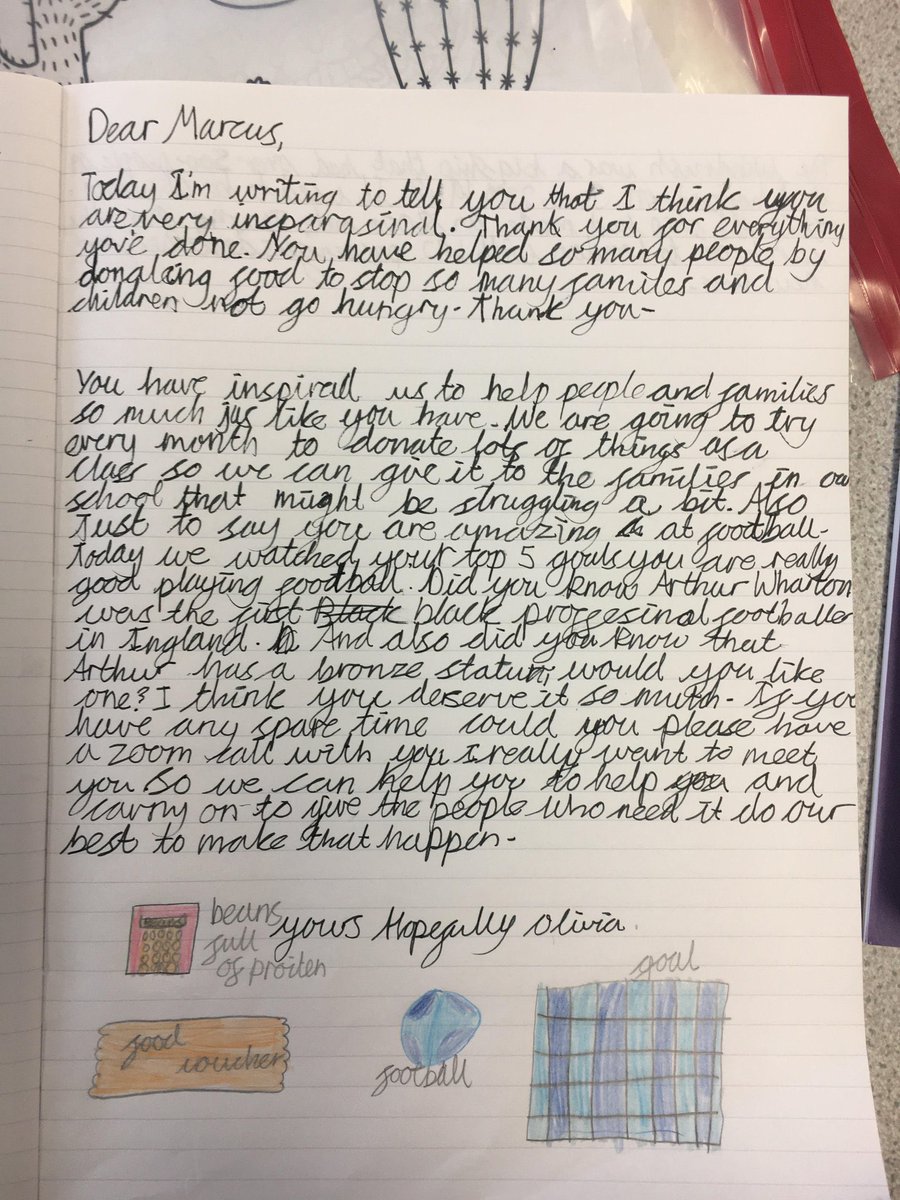 Dear Marcus,
Today I'm writing to tell you that I think you
are very insparasinal. Thank you for everything
yove done. You have helped so many people by
donating food to stop so many familes and
children not go hungry. Thank you.
You have inspirall us to help people and families
so much jus like you have. We are going to try
every month to donate lots of things as a
class so we can give it to the families in our
school that might be struggling a bit. Also
Just to say you are amazing at football.
Today we watched your top 5 goals you are really
good playing football. Did you know Arthur Wharton
was the fist Black black proggesinal footballer
in England. And also did you know that
Arthur has a bronze statue, would you like
one? I think you deserve it so much. If you
have any spare time could you please have
a zoom call with you I really want to meet
you So we can help you to help you and
carry on to give the people who need it do our
best to make that happen.
yours Hopefully Olivia.
beans
full
of proiten
food
voucher
football
goal